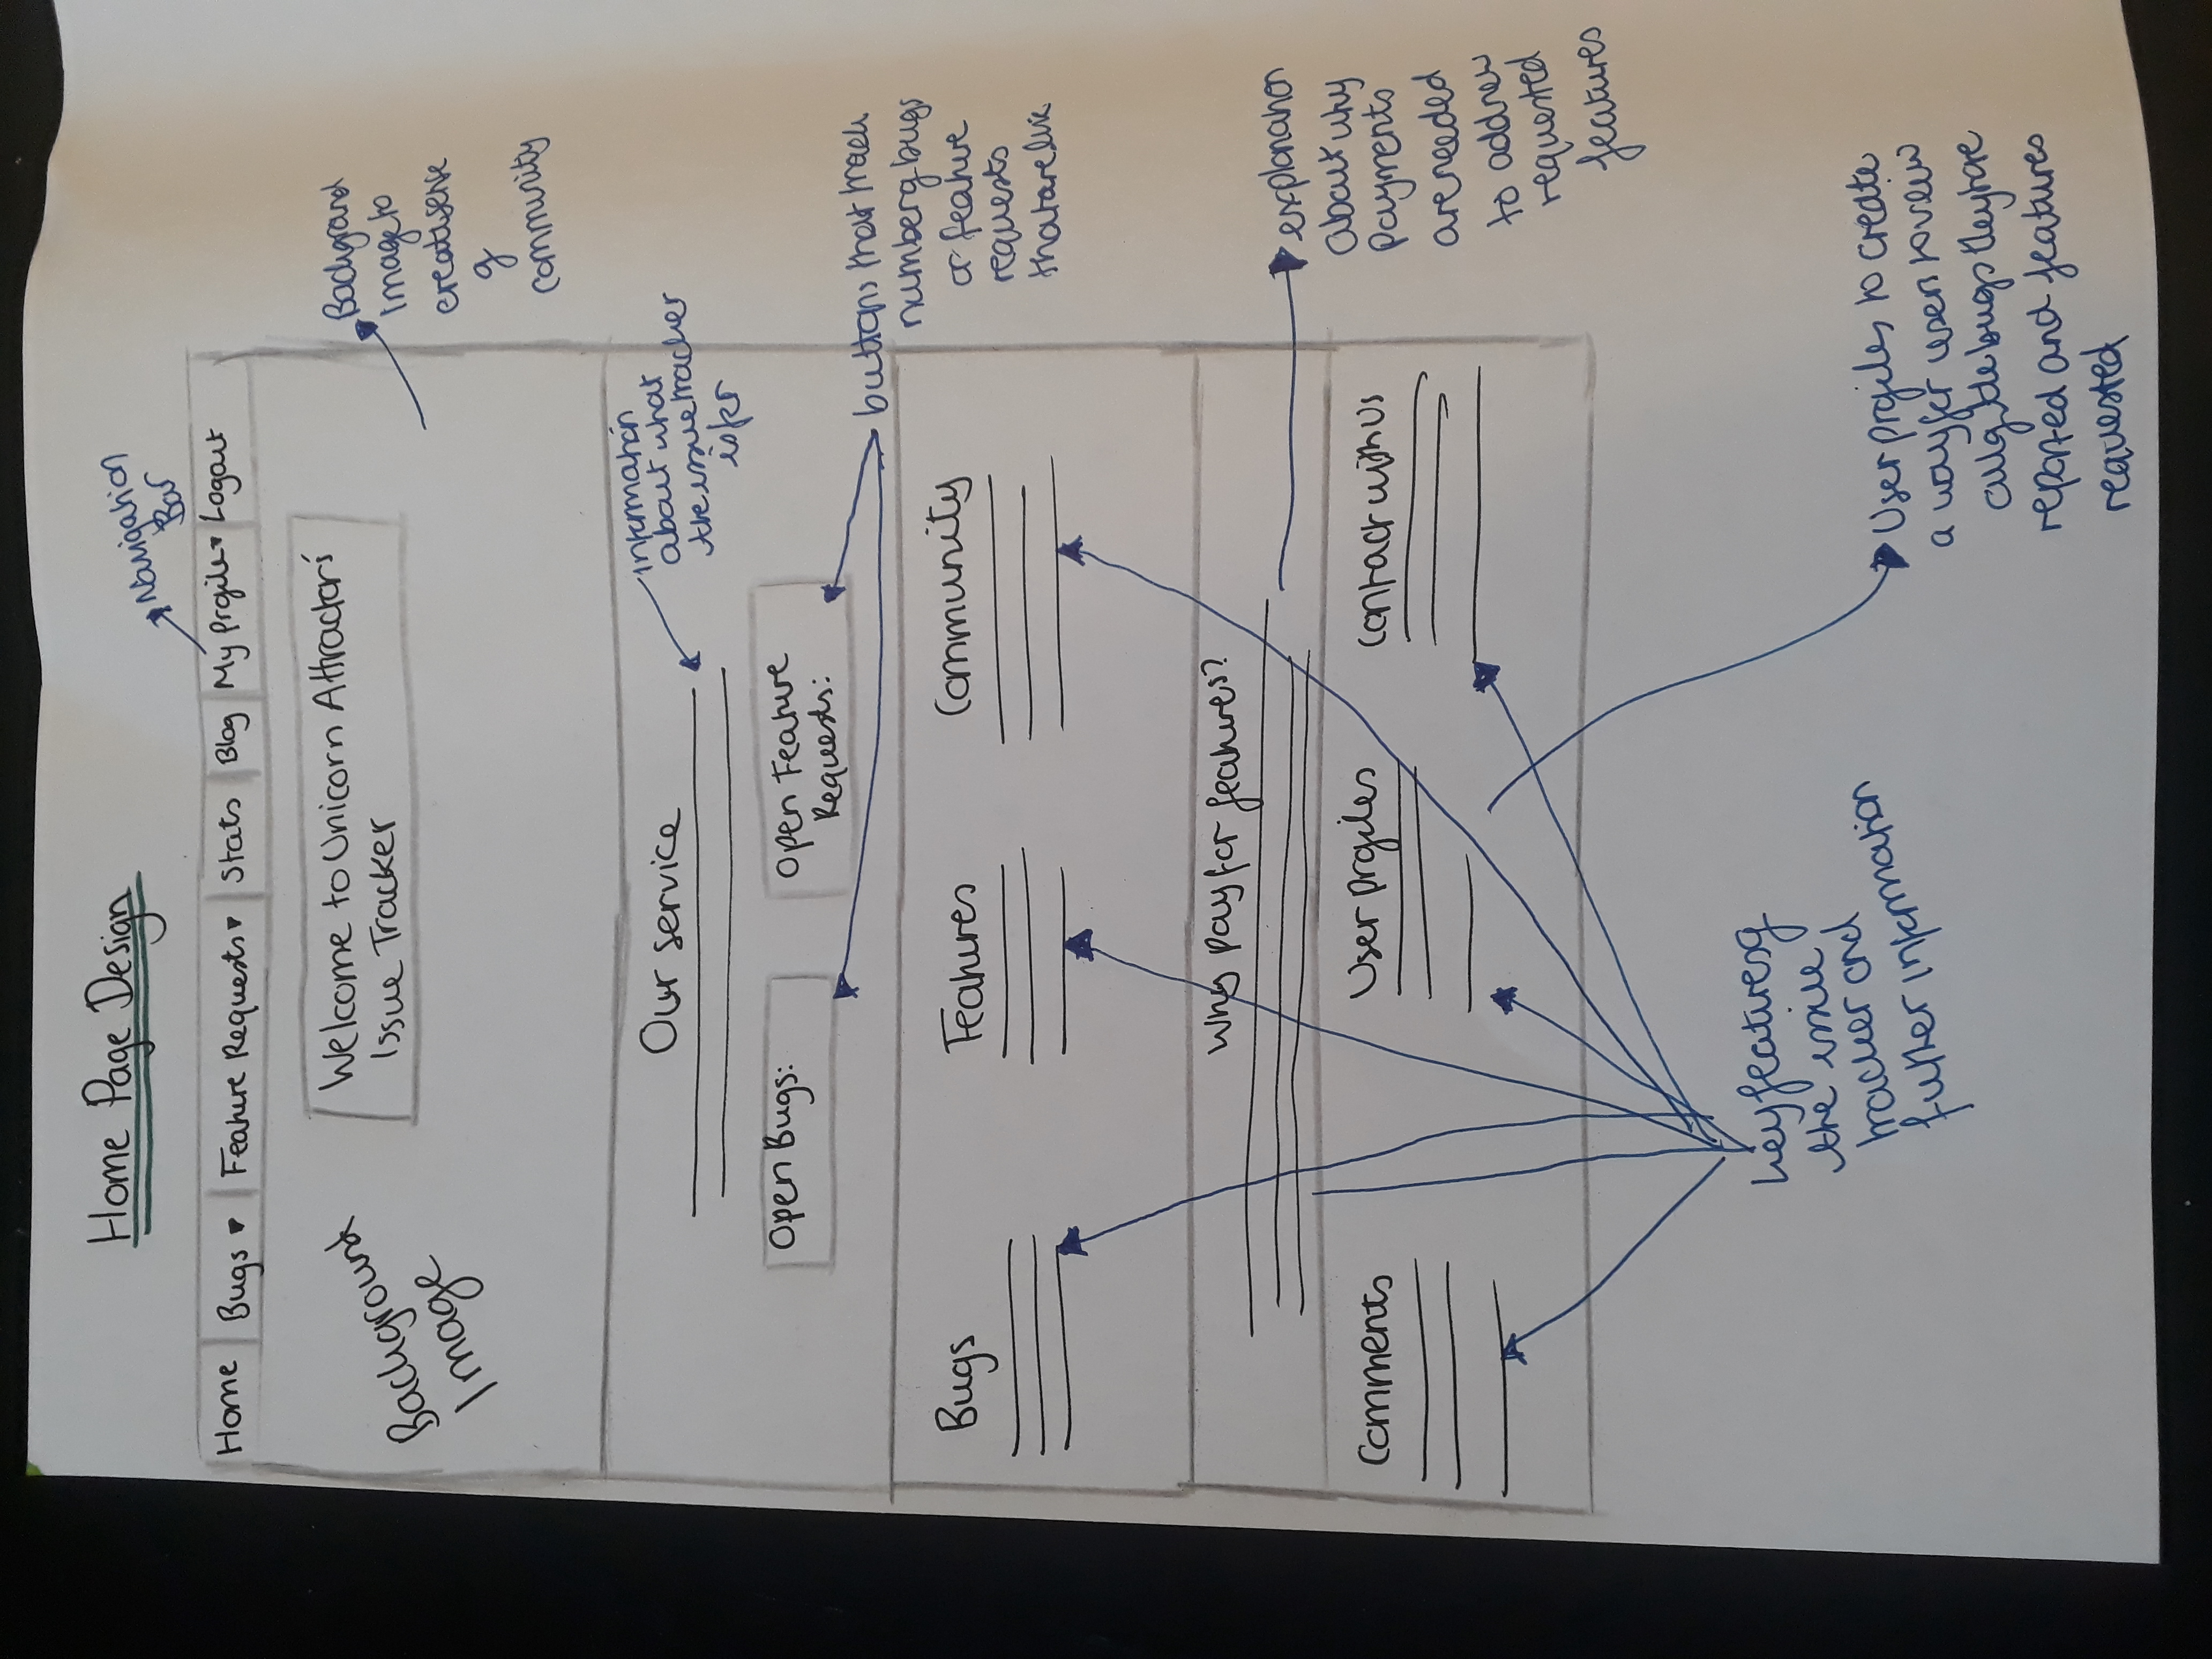 Home Page Design
Navigation
Bar
Home
Bugs ▾
Feature Requests ▾
Stats
Blog
My Profile ▾
Logout
Background
Image
Welcome to Unicorn Attractor's
Issue Tracker
Background
Image to
create sense
of
community
Our service
Information
about what
the issue tracker
is for
Open Bugs:
Open Feature
Requests:
buttons that track
number of bugs
or feature
requests
that are live
Bugs
Features
Community
Why pay for features?
explanation
about why
payments
are needed
to add new
requested
features
Comments
User profiles
Contact with Us
key features of
the issue
tracker and
futher information
User profiles to create
a way for users to veiw
all of the bugs they have
reported and features
requested